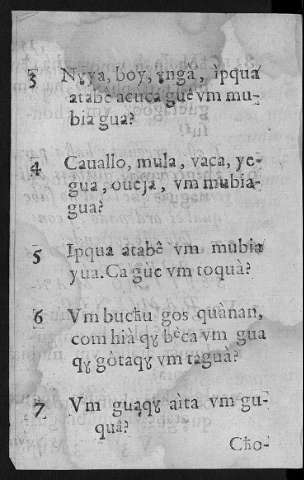 3 Nyya, boy, yngâ, ìpqua
atabê acuca guê vm mu-
bia gua?
4 Cauallo, mula, vaca, ye-
gua, oueja, vm mubia-
gua?
5 Ipqua atabê vm mubia
yua. Ca gue vm toquà?
6 Vm buchu gos quànan,
com hià qy bèca vm gua
qy gòtaqy vm tagua?
7 Vm guąqy aìta vm gu-
quâ?
Cho-